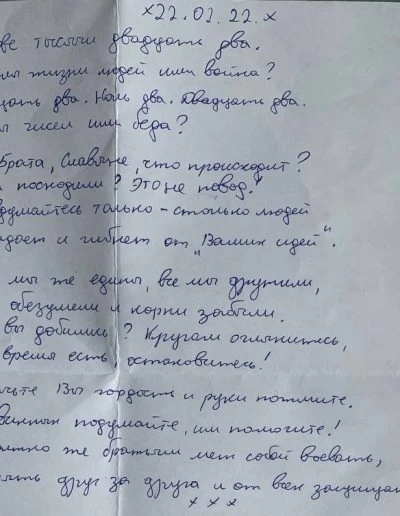 x22.02.22.x
ве тысячи двадцать два.
жизни людей или война?
цать два. Ноль два. Двадцать два.
чисел или беда?
Брата, Славяне, что происходит?
посходили? Это не повод!
думайтесь только - столько людей
адает и гибнет от "Ваших идей".
мы же едины, все мы дружили,
обезумели и корни забыли.
вы добились? Кругом оглянитесь,
время есть, остановитесь!
Вы гордость и руки пожмите.
подумайте, им помогите!
же братьям меж собой воевать,
друг за друга и от всех защищат
x x x